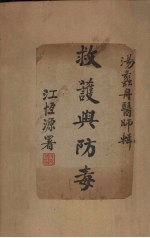 湯蠡舟醫師輯
救護與防毒
江恒源署